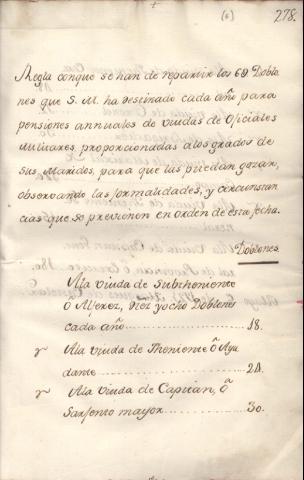 (6) 278.
Regla conque se han de repartir los 6@ Doblo
nes que S. M. ha destinado cada año para
pensiones annuales de viudas de Oficiales
Militares, proporcionadas alos grados de
sus Maridos, para que las puedan gozar,
observando las formalidades, y circunstan
cias que se previenen en orden de esta fecha.
Doblones.
Ala viuda de Subtheniente
ô Alferez, diez yocho Doblones
cada año .......... 18.
Ala viuda de Theniente ô Ayu
dante .......... 24.
Ala viuda de Capitan, ô
Sarjento mayor .......... 30.